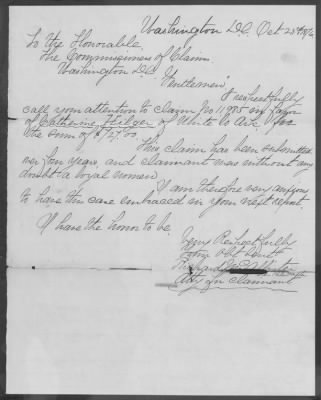 Washington D.C. Oct 23rd 1876
To the Honorable
The Commissioners of Claims
Washington D.C.
Gentlemen
I respectfully
call your attention to claim No 11985 in favor
of Catherine of White Co Ark, for
the sum of $727.00.
This claim has been submitted
over four years, and claimant was without any
doubt a loyal woman.
I am therefore very anxious
to have this case embraced in your next report.
I have the honor to be
Very Respectfully
Your Obt Servt
Atty for Claimant